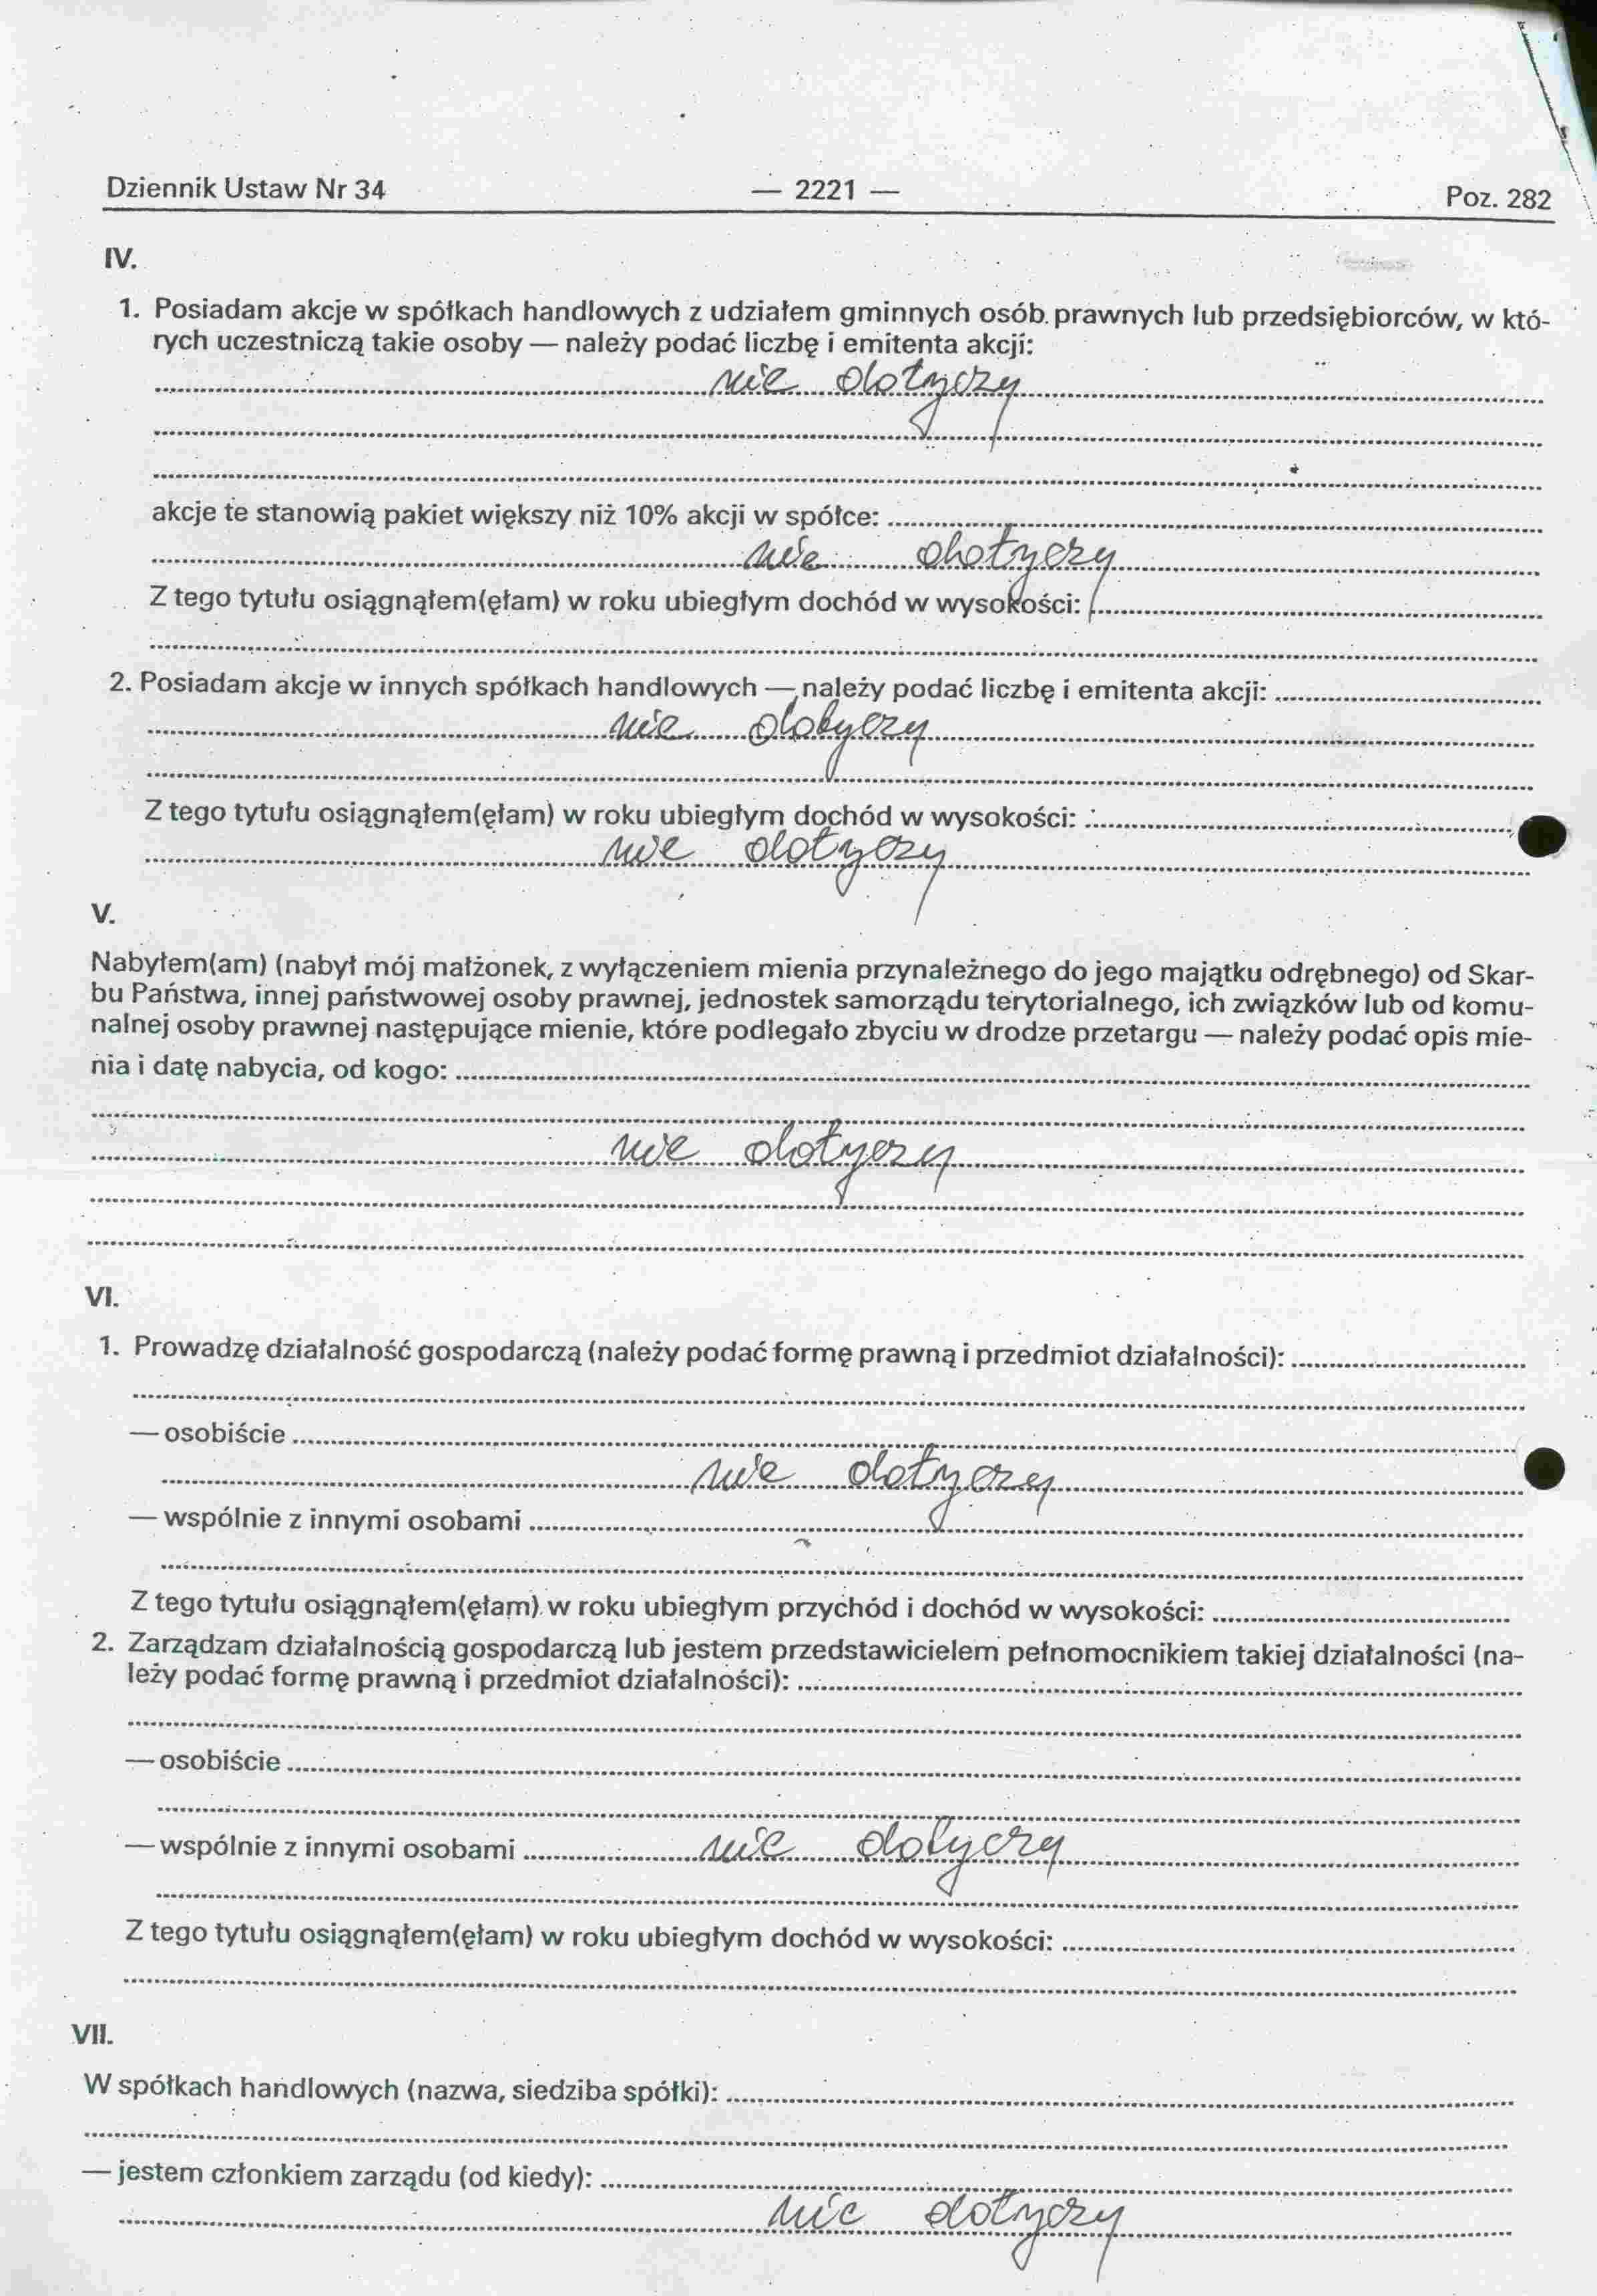 Dziennik Ustaw Nr 34 — 2221 — Poz. 282
IV.
1. Posiadam akcje w spółkach handlowych z udziałem gminnych osób prawnych lub przedsiębiorców, w któ-
rych uczestniczą takie osoby — należy podać liczbę i emitenta akcji:
nie dotyczy
akcje te stanowią pakiet większy niż 10% akcji w spółce:
nie dotyczy
Z tego tytułu osiągnąłem(ęłam) w roku ubiegłym dochód w wysokości:
2. Posiadam akcje w innych spółkach handlowych — należy podać liczbę i emitenta akcji:
nie dotyczy
Z tego tytułu osiągnąłem(ęłam) w roku ubiegłym dochód w wysokości:
nie dotyczy
V.
Nabyłem(am) (nabył mój małżonek, z wyłączeniem mienia przynależnego do jego majątku odrębnego) od Skar-
bu Państwa, innej państwowej osoby prawnej, jednostek samorządu terytorialnego, ich związków lub od komu-
nalnej osoby prawnej następujące mienie, które podlegało zbyciu w drodze przetargu — należy podać opis mie-
nia i datę nabycia, od kogo:
nie dotyczy
VI.
1. Prowadzę działalność gospodarczą (należy podać formę prawną i przedmiot działalności):
— osobiście
nie dotyczy
— wspólnie z innymi osobami
Z tego tytułu osiągnąłem(ęłam) w roku ubiegłym przychód i dochód w wysokości:
2. Zarządzam działalnością gospodarczą lub jestem przedstawicielem pełnomocnikiem takiej działalności (na-
leży podać formę prawną i przedmiot działalności):
— osobiście
— wspólnie z innymi osobami nie dotyczy
Z tego tytułu osiągnąłem(ęłam) w roku ubiegłym dochód w wysokości:
VII.
W spółkach handlowych (nazwa, siedziba spółki):
— jestem członkiem zarządu (od kiedy):
nie dotyczy